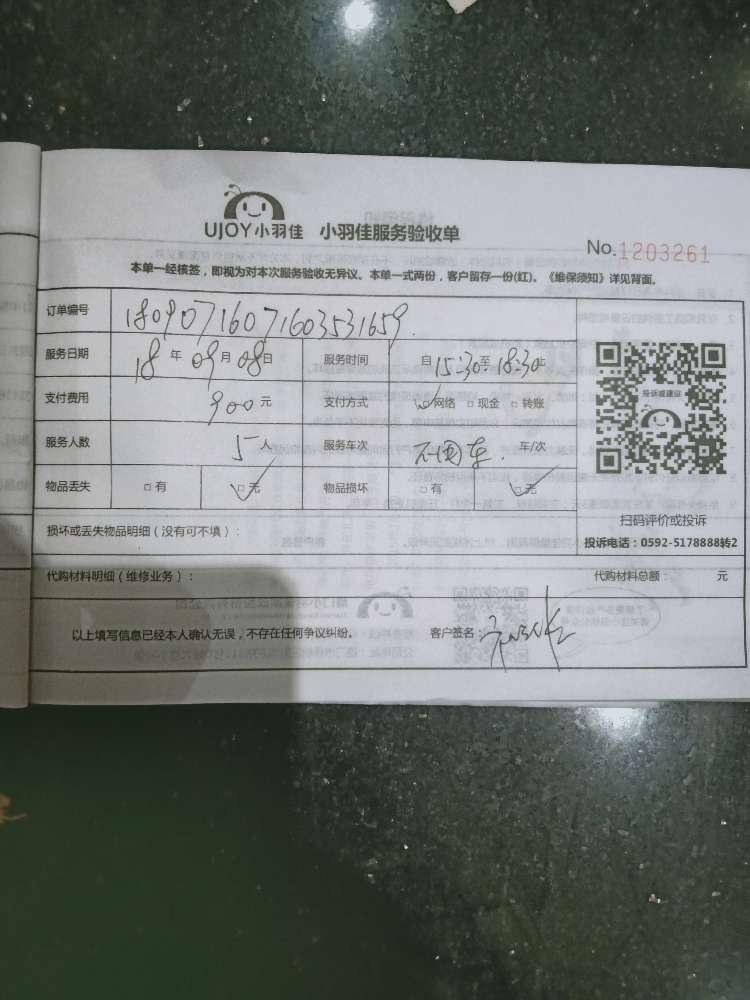 UJOY小羽佳 小羽佳服务验收单
No.1203261
本单一经核签，即视为对本次服务验收无异议。本单一式两份，客户留存一份(红)。《维保须知》详见背面。
订单编号 1809071607160353​1659
服务日期 18年09月08日 服务时间 自15:30至18:30止
支付费用 900元 支付方式 ☑网络 □现金 □转账
服务人数 5人 服务车次 车/次
物品丢失 □有 ☑无 物品损坏 □有 ☑无
投诉或建议
扫码评价或投诉
投诉电话：0592-5178888转2
损坏或丢失物品明细（没有可不填）：
代购材料明细（维修业务）： 代购材料总额： 元
以上填写信息已经本人确认无误，不存在任何争议纠纷。 客户签名：